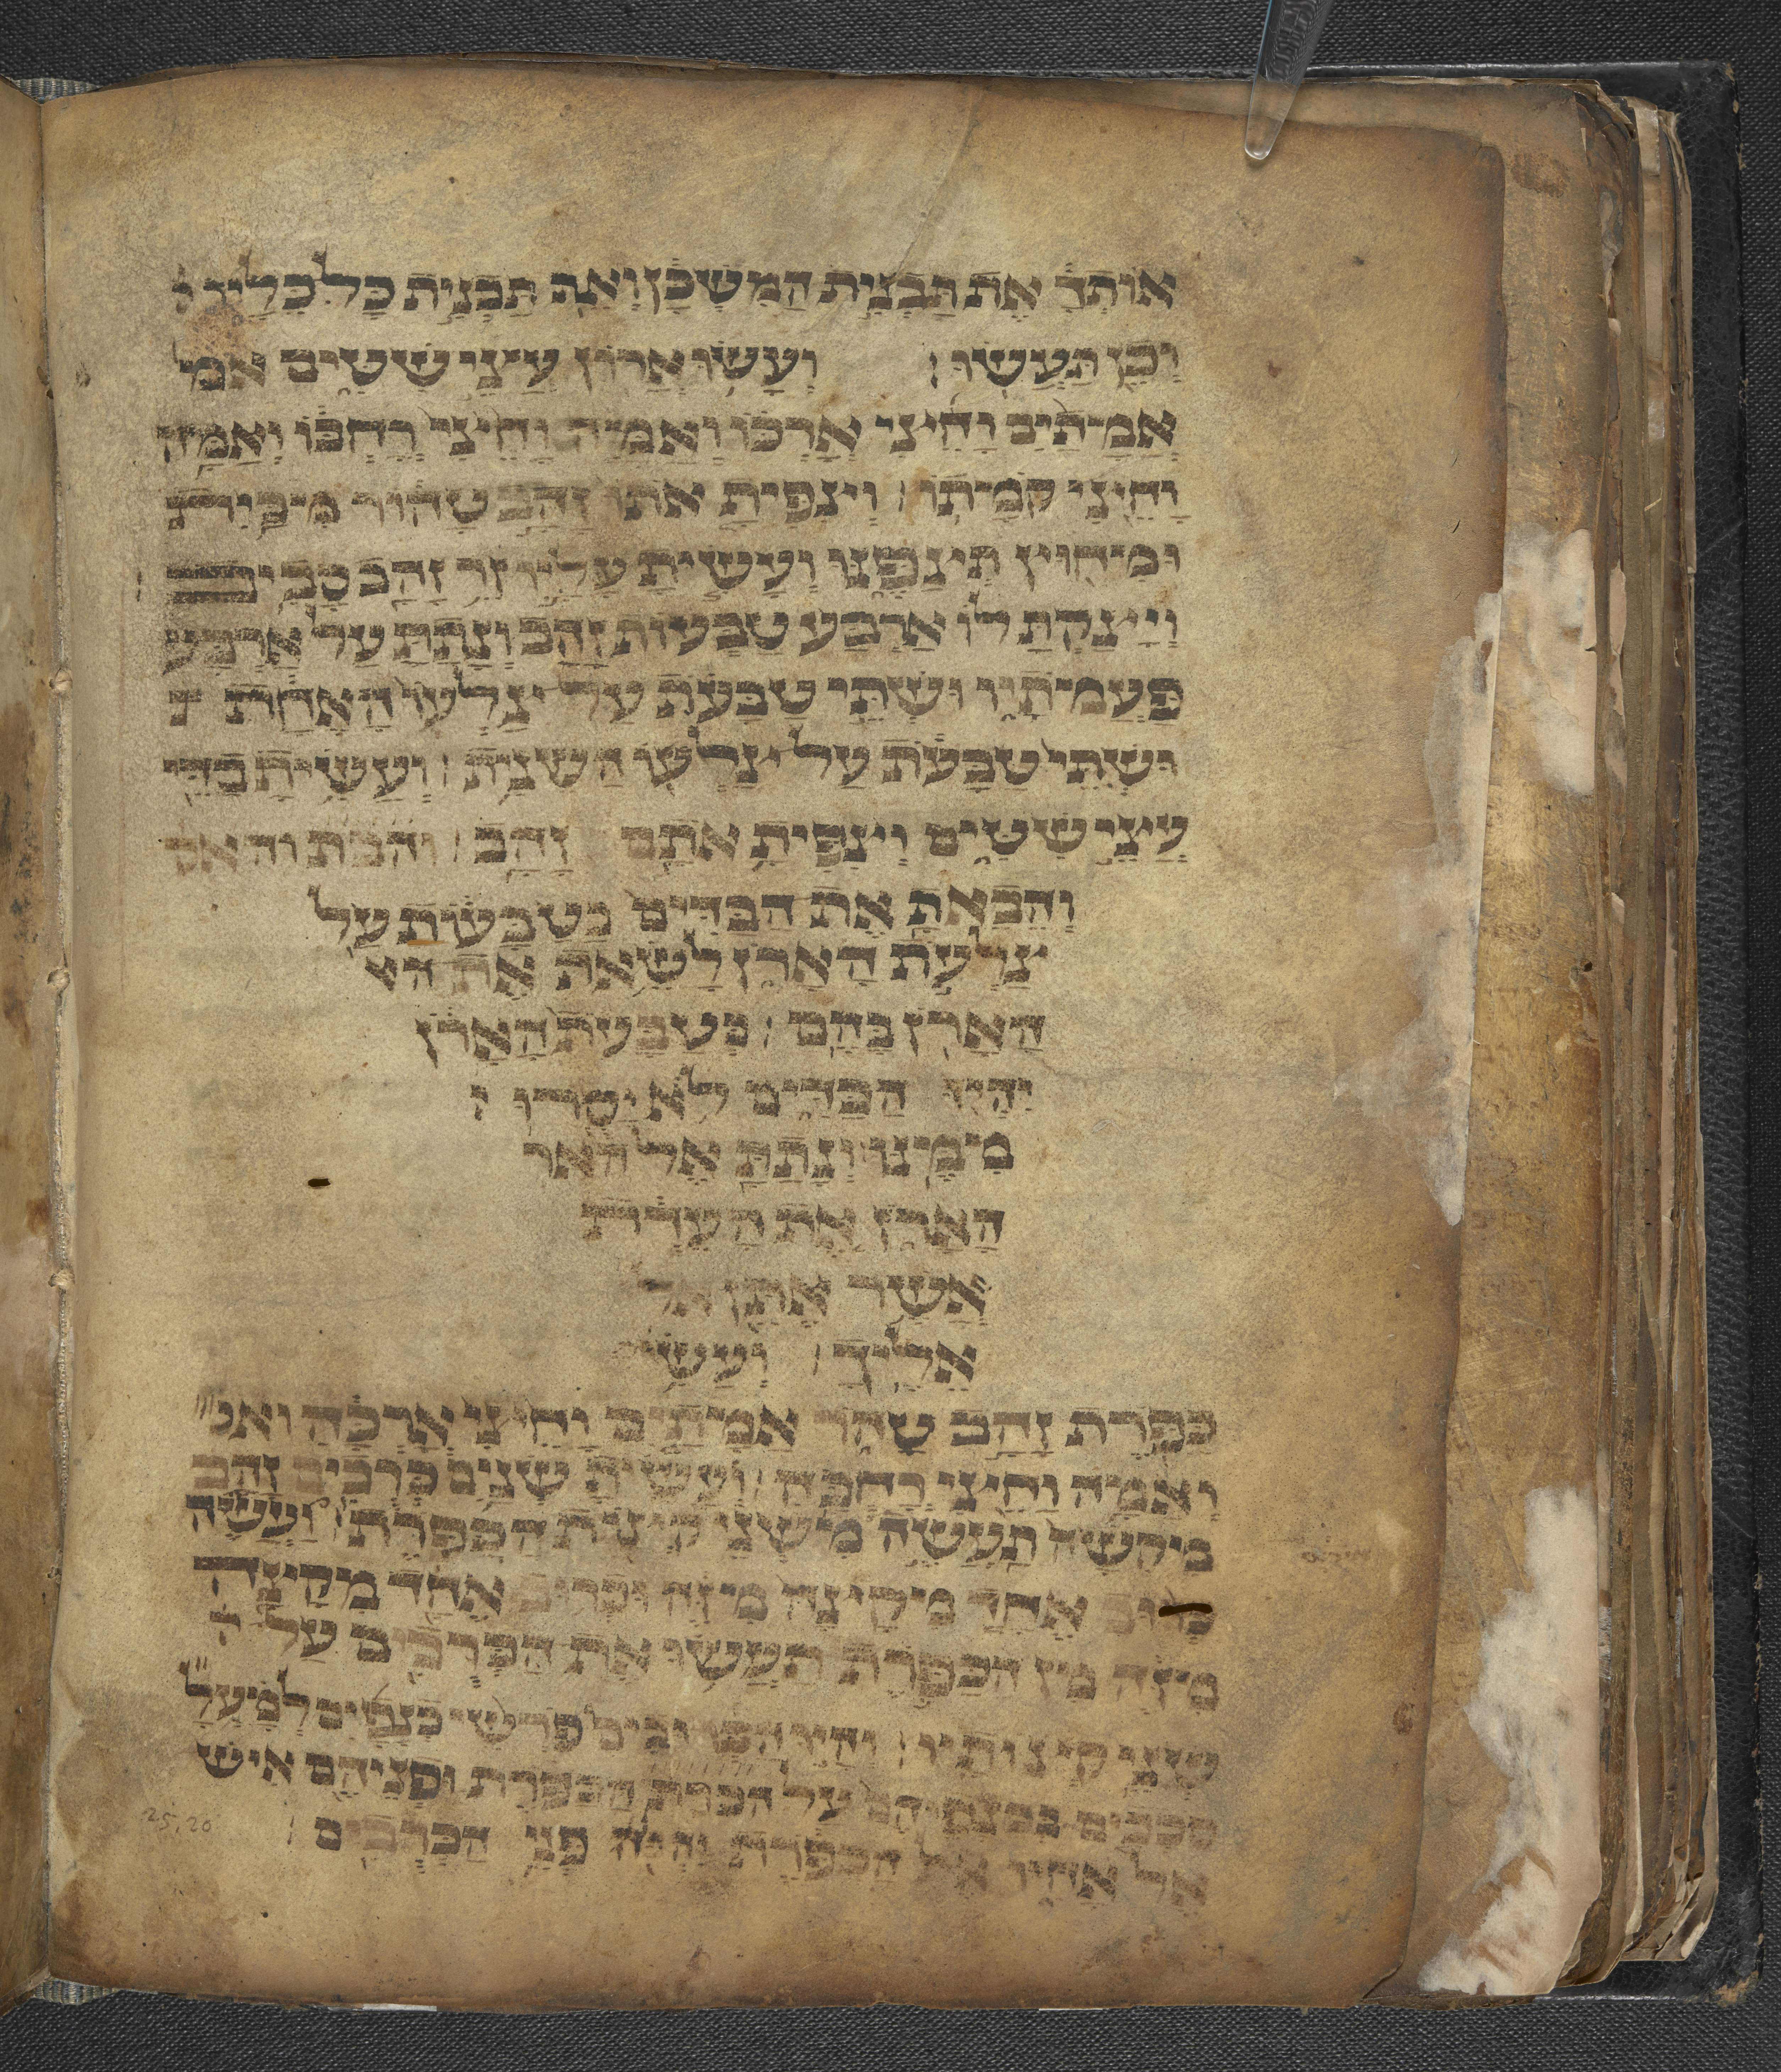 אותך את תבנית המשכן ואת תבנית כל כליו
וכן תעשו ועשו ארון עצי שטים אמ
אמתים וחצי ארכו ואמה וחצי רחבו ואמה
וחצי קמתו וצפית אתו זהב טהור מבית
ומחוץ תצפנו ועשית עליו זר זהב סביב
ויצקת לו ארבע טבעות זהב ונתת על ארבע
פעמתיו ושתי טבעת על צלעו האחת
ושתי טבעת על צלעו השנית ועשית בדי
עצי שטים וצפית אתם זהב
והבאת את הבדים בטבעת על
צלעת הארן לשאת את
הארן בהם בטבעת הארן
יהיו הבדים לא יסרו
ממנו ונתת אל האר
הארן את העדת
אשר אתן
אליך ועשי
כפרת זהב טהור אמתים וחצי ארכה ואמ
ואמה וחצי רחבה ועשית שנים כרבים זהב
מקשה תעשה משני קצות הכפרת ועשה
כרוב אחד מקצה מזה וכרוב אחד מקצה
מזה מן הכפרת תעשו את הכרבים על
שני קצותיו והיו הכרובים פרשי כנפים למעל
סככים בכנפיהם על הכפרת ופניהם איש
אל אחיו אל הכפרת יהיו פני הכרבים
25,20